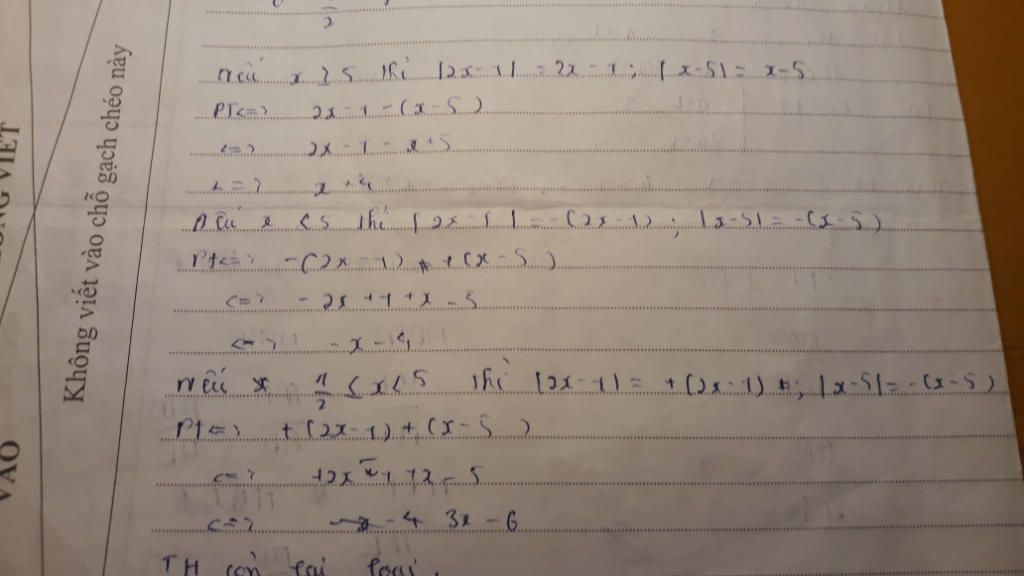 2
Nếu x ≥ 5 thì |2x-1| = 2x-1; |x-5| = x-5
PT<=> 2x-1-(x-5)
<=> 2x-1-x+5
<=> x+4
Nếu x < 5 thì |2x-1| = -(2x-1); |x-5| = -(x-5)
Pt<=> -(2x-1) +(x-5)
<=> -2x+1+x-5
<=> -x-4
Nếu 1/2 ≤ x < 5 thì |2x-1| = +(2x-1); |x-5| = -(x-5)
Pt<=> +(2x-1)+(x-5)
<=> +2x-1+x-5
<=> -4 3x-6
TH còn lại loại.
Không viết vào chỗ gạch chéo này
VIẾT
VÀO